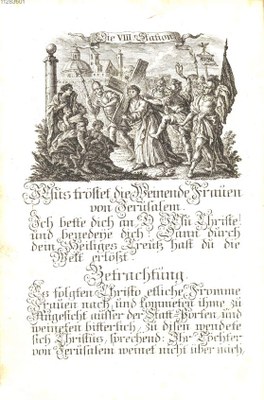 11283901
Die VIII Station
JEsus tröstet die Weinende Frauen
von Jerusalem.
Ich bette dich an O JEsu Christe!
und benedeye dich! Dann durch
dein Heiliges Creutz hast du die
Welt erlößt.
Betrachtung.
Es folgten Christo etliche Fromme
Frauen nach, und kommeten ihme zu
Angesicht ausser der Statt-Porten, und
weineten bitterlich, zu disen wendete
sich Christus, sprechend: Ihr Töchter
von Jerusalem weinet nicht über mich,